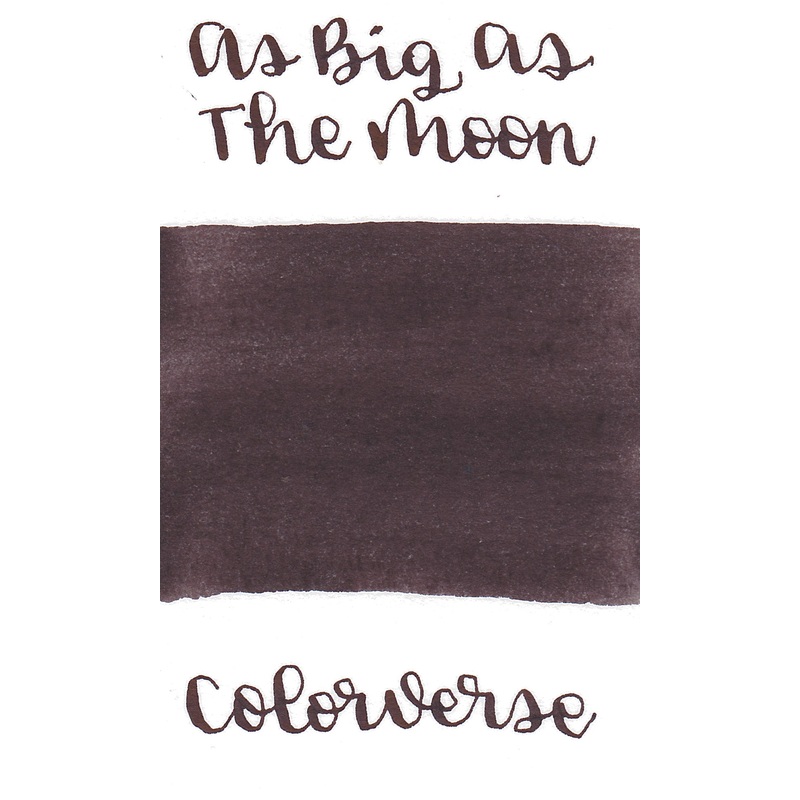 As Big As
The Moon
Colorverse